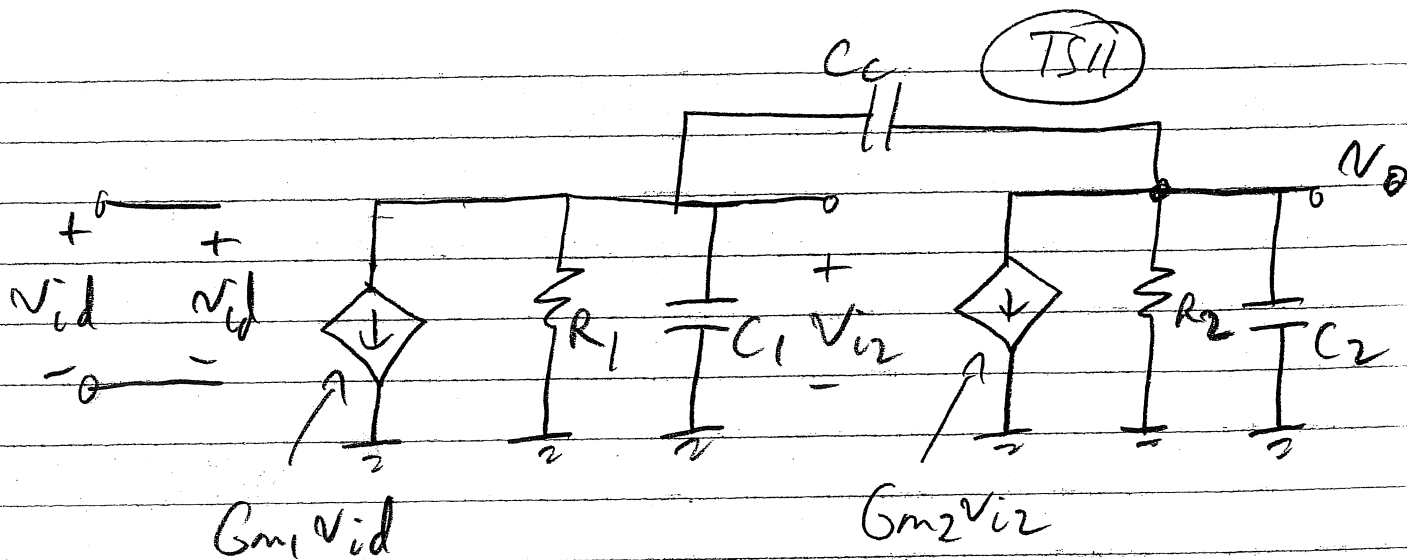 Cc
TS11
vo
+
vid
-
+
vid
-
R1
C1
+
Vi2
-
R2
C2
Gm1vid
Gm2vi2